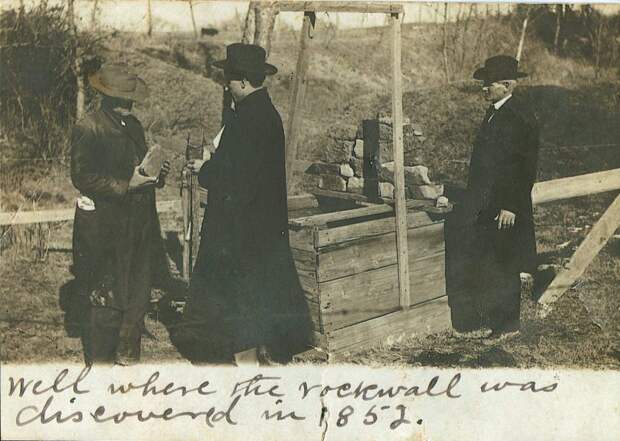 Well where the rockwall was
discovered in 1852.